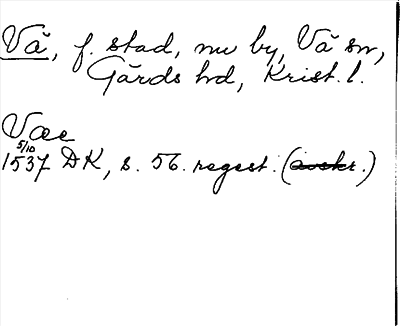 Vä, f. stad, nu by, Vä sn,
Gärds hd, Krist. l.
Væ
5/10
1537 DK, s. 56. regest. (avskr.)